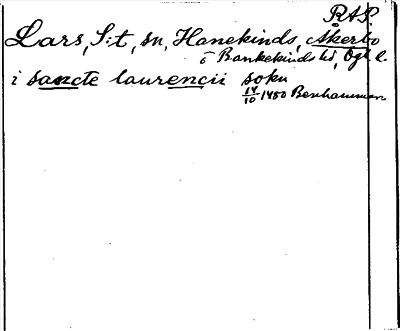 RAP.
Lars, S:t, sn, Hanekinds, Åkerbo
o Bankekinds hd, Ög l.
i sancte laurencii sokn
14/10 1450 Benhammar